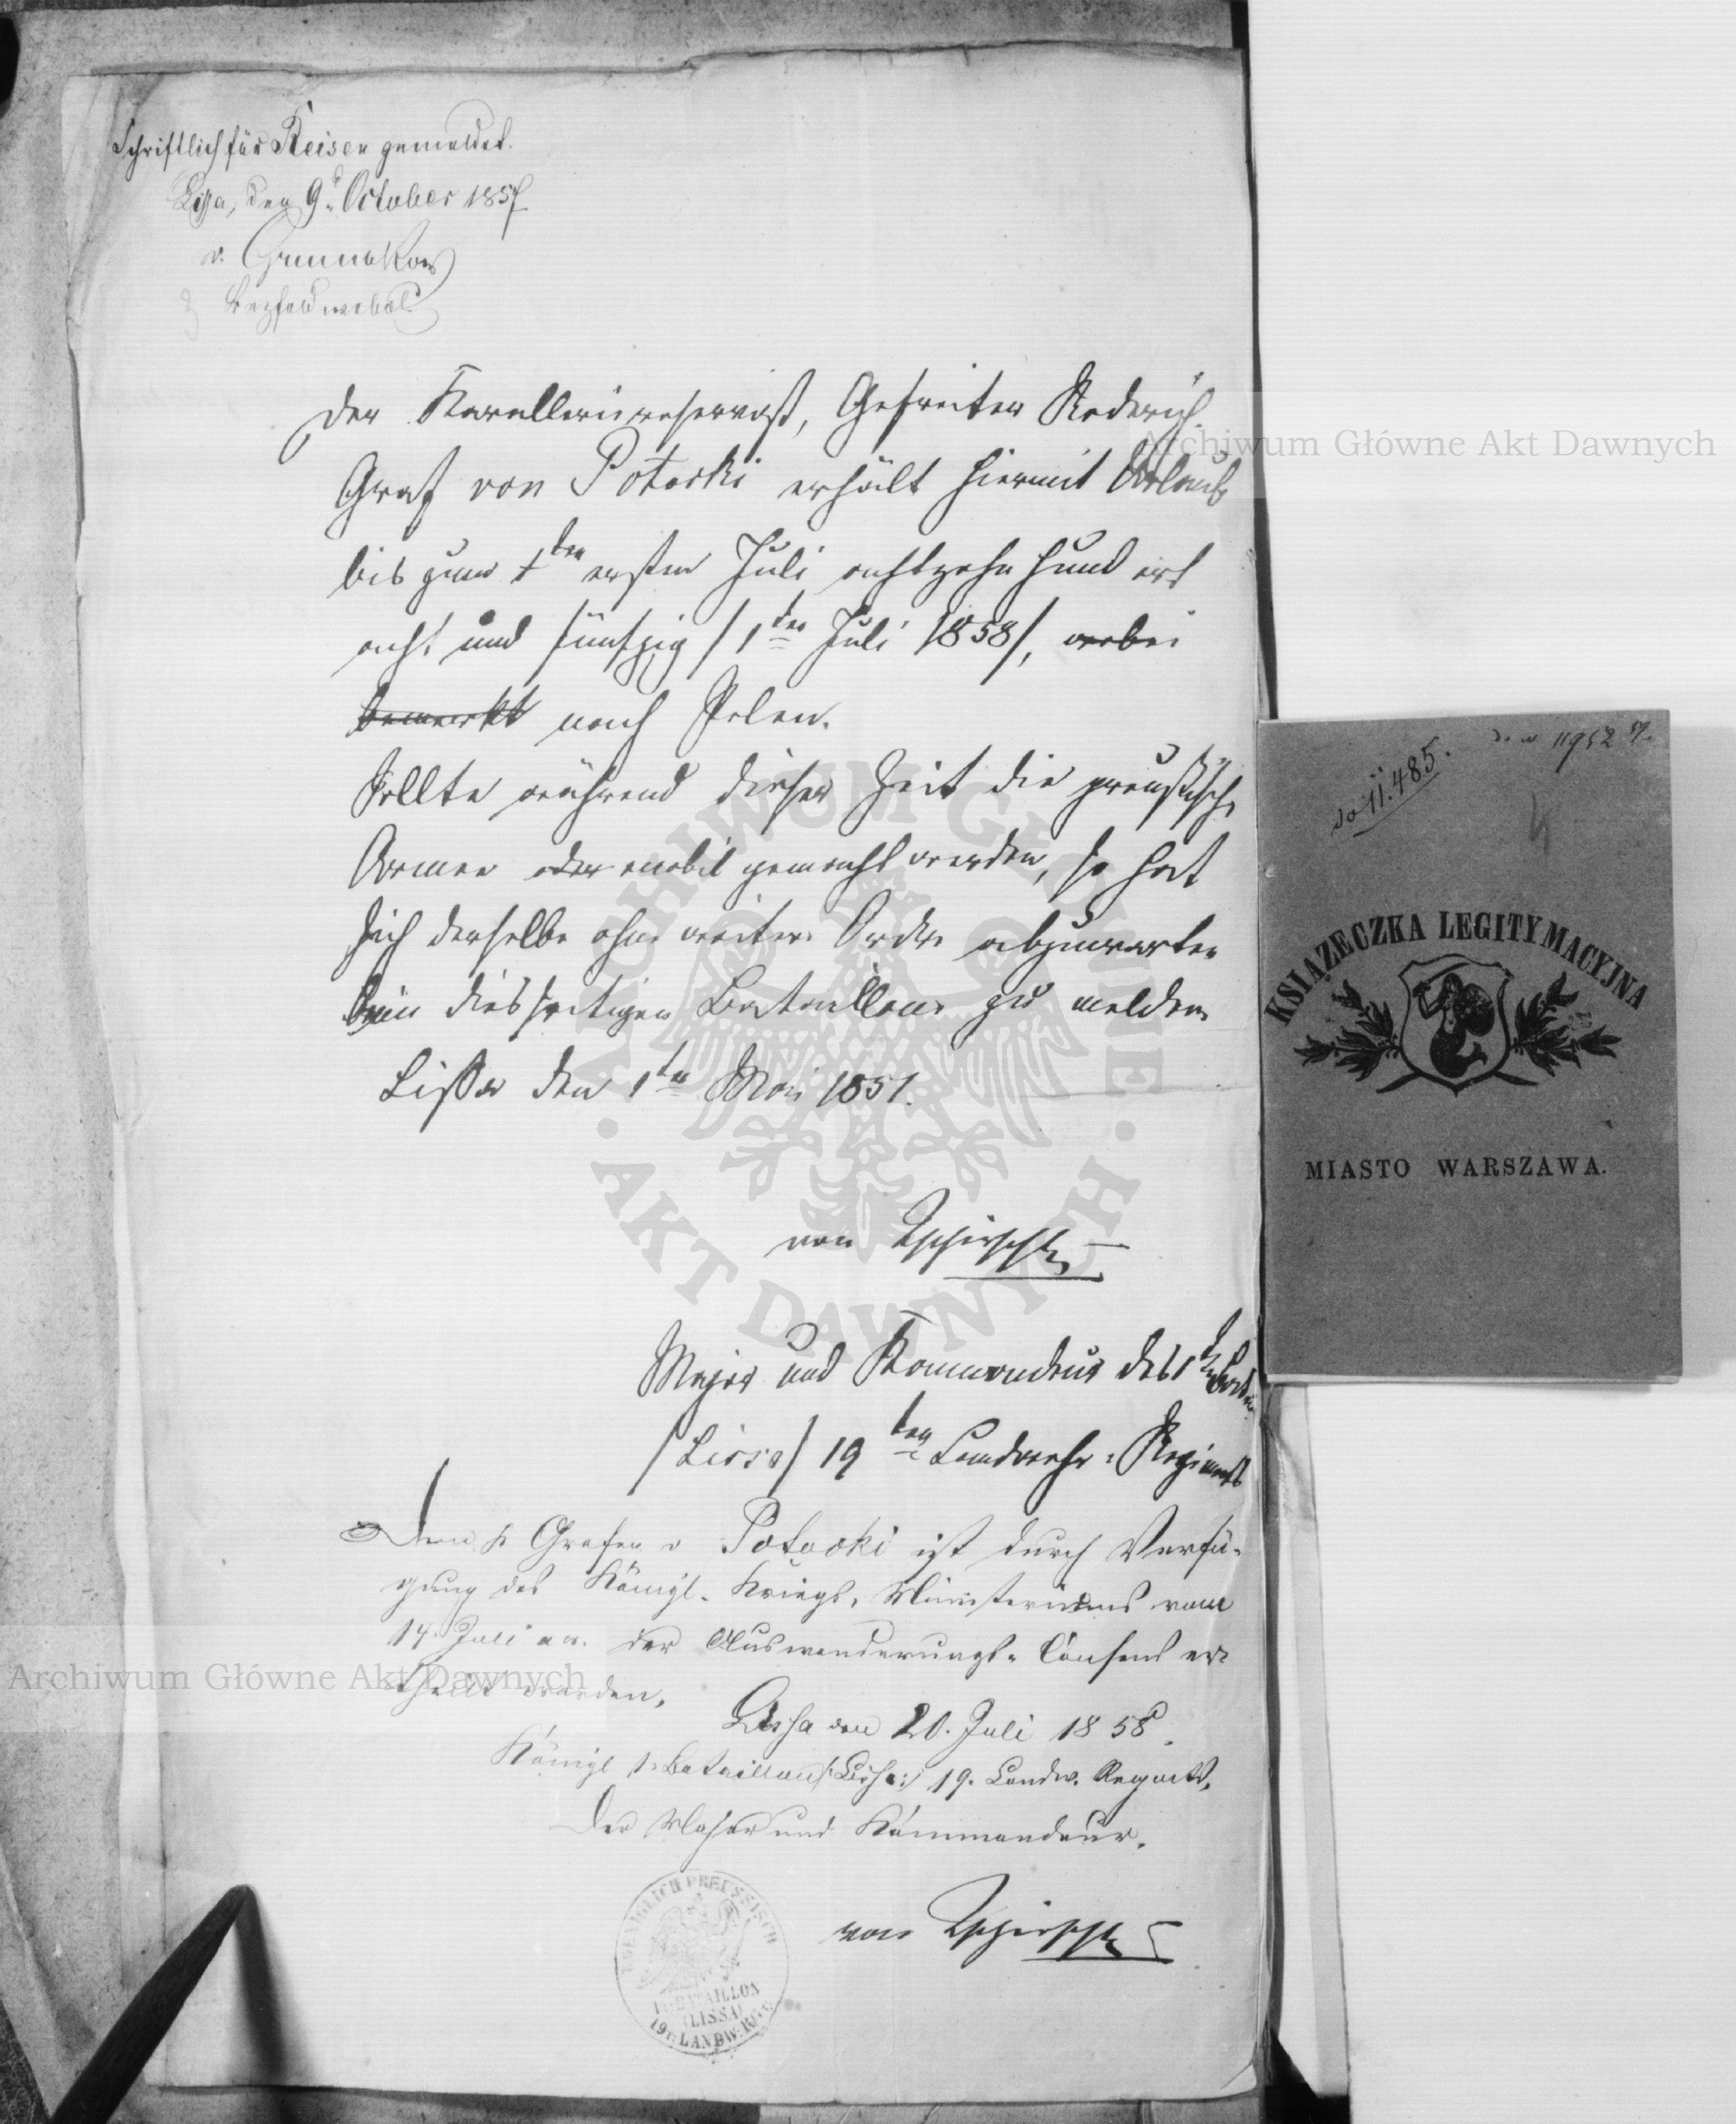 Schriftlich für Reisen gemeldet.
Lissa, den 9t. October 1857
v.
Bezfeldwebel
Der Kavalleriereservist, Gefreiter Roderich
Graf von Potocki erhält hiermit Urlaub
bis zum 1ten ersten Juli achtzehn hundert
acht und fünfzig / 1ten Juli 1858/, wobei
bemerkt nach Polen.
Sollte während dieser Zeit die preußische
Armee oder mobil gemacht werden, so hat
sich derselbe ohne weitere Ordre abzuwarten
beim diesseitigen Bataillone zu melden
Lissa den 1ten Mai 1857.
von Tschirschky
Major und Kommandeur des 1ten Bat.
/Lissa/ 19ten Landwehr-Regiments
Dem p Grafen v Potocki ist durch Verfü-
gung des Königl. Kriegs-Ministeriums vom
14. Juli der Auswanderungs-Consens er-
theilt worden.
Lissa den 20. Juli 1858.
Königl 1. Bataillon /:Lissa:/ 19. Landw. Regmts.
Der Major und Kommandeur.
von Tschirschky
KOENIGLICH PREUSSISCH
BATAILLON
(LISSA)
19tes LANDW: REG:
do 11.485.
11952
KSIĄŻECZKA LEGITYMACYJNA
MIASTO WARSZAWA.
Archiwum Główne Akt Dawnych
ARCHIWUM GŁÓWNE
AKT DAWNYCH
Archiwum Główne Akt Dawnych